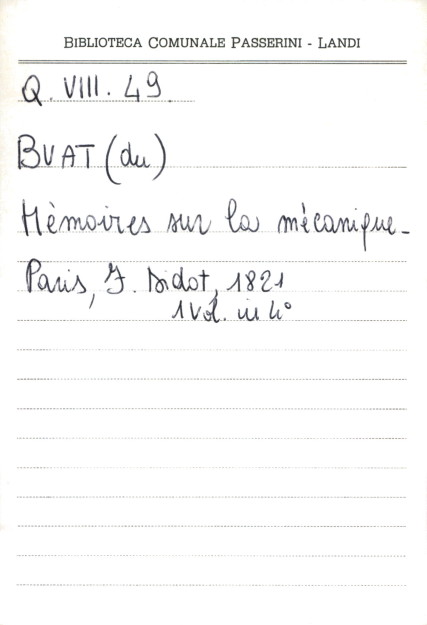 BIBLIOTECA COMUNALE PASSERINI - LANDI
Q. VIII. 49.
BUAT (du)
Mèmoires sur la mécanique -
Paris, F. Didot, 1821
1 vol. in 4°